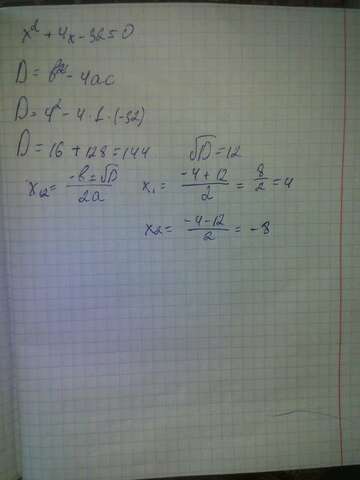 x² + 4x - 32 = 0
D = b² - 4ac
D = 4² - 4 · 1 · (-32)
D = 16 + 128 = 144 √D = 12
x₁,₂ = (-b ± √D)/(2a) x₁ = (-4 + 12)/2 = 8/2 = 4
x₂ = (-4 - 12)/2 = -8